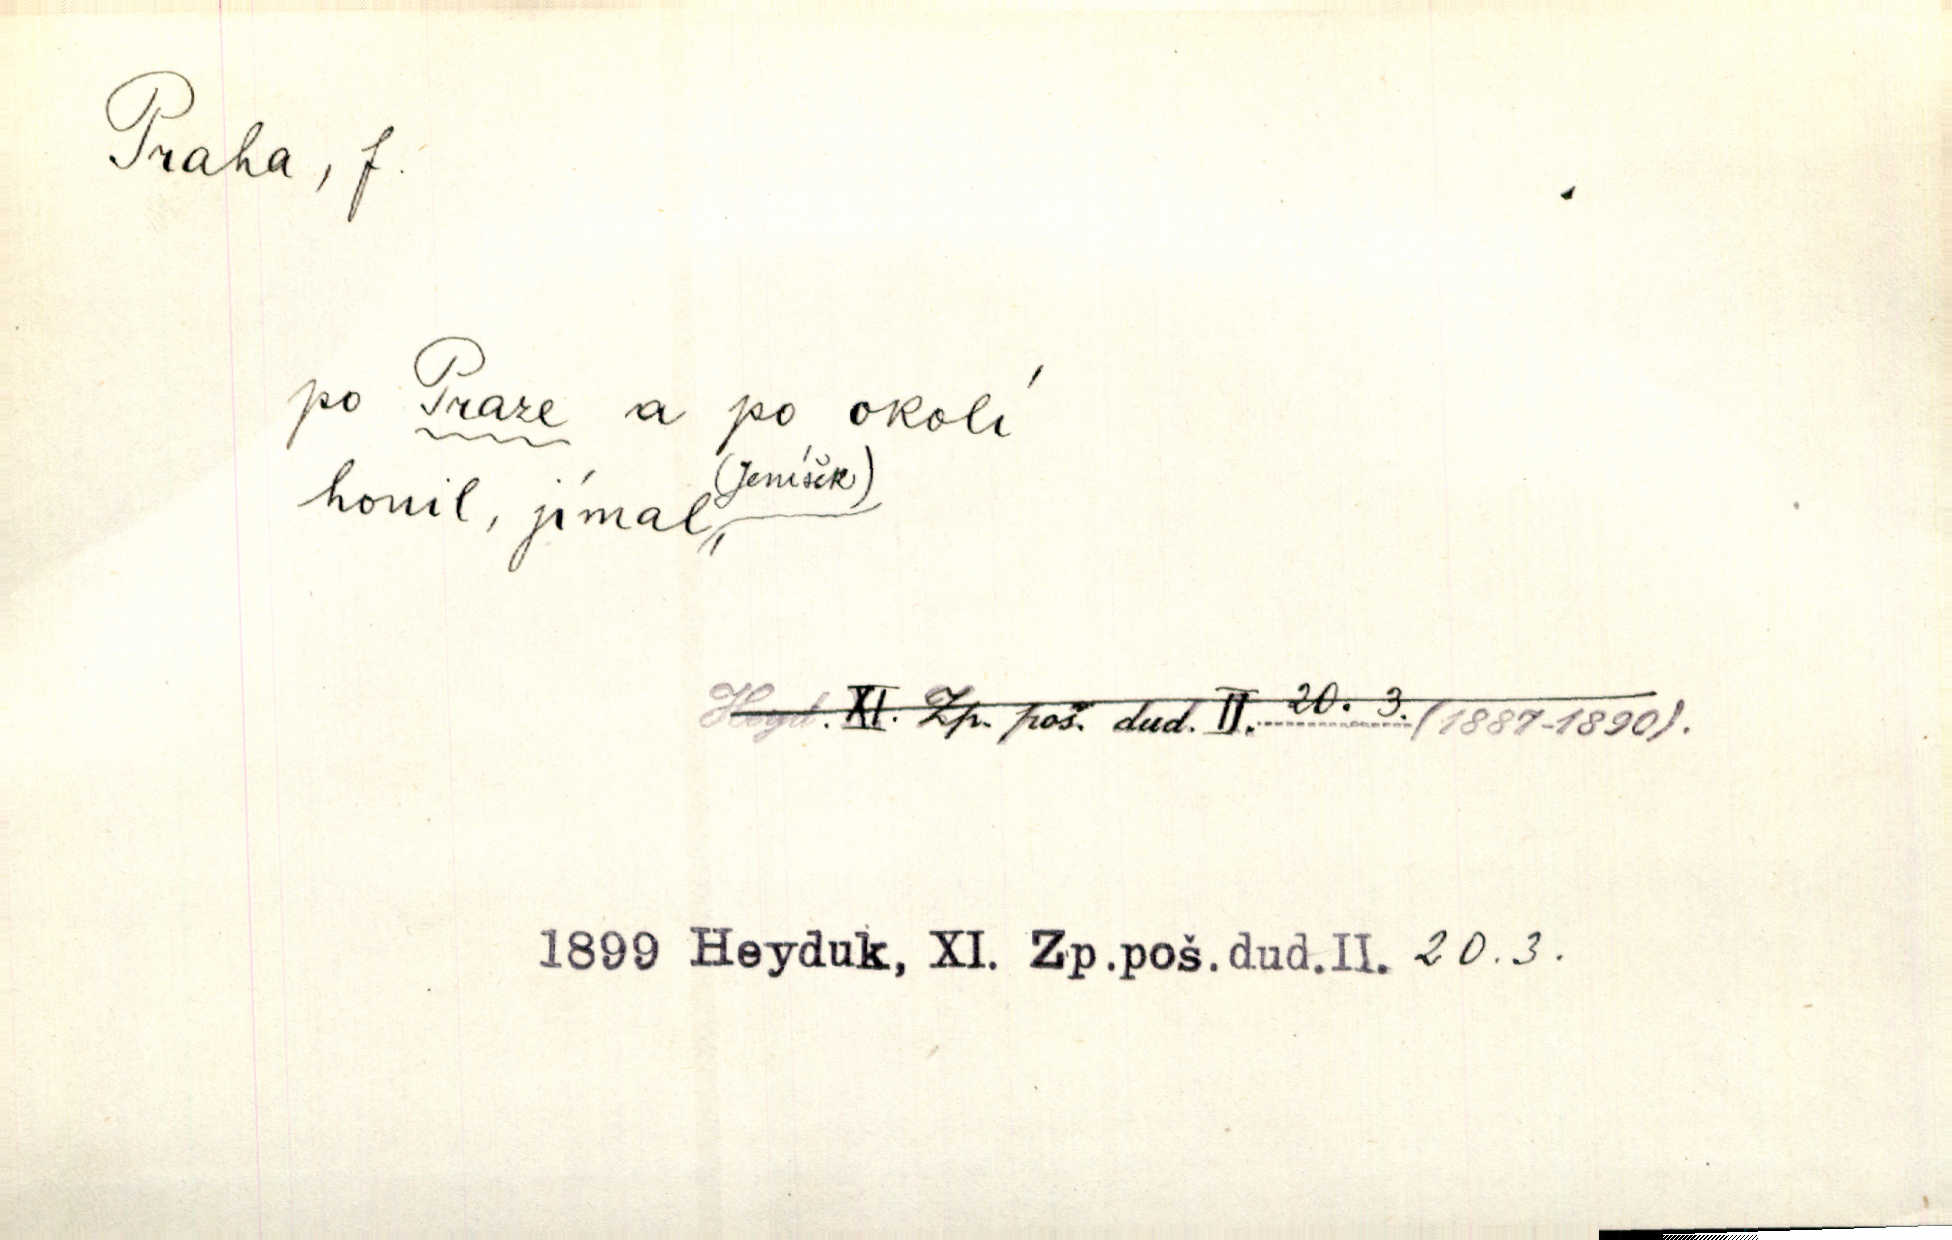 Praha, f.
po Praze a po okolí
honil, jímal (Jeníšek)
Heyd. XI. Zp. poš. dud. II. 20. 3. (1887-1890).
1899 Heyduk, XI. Zp.poš.dud.II. 20.3.